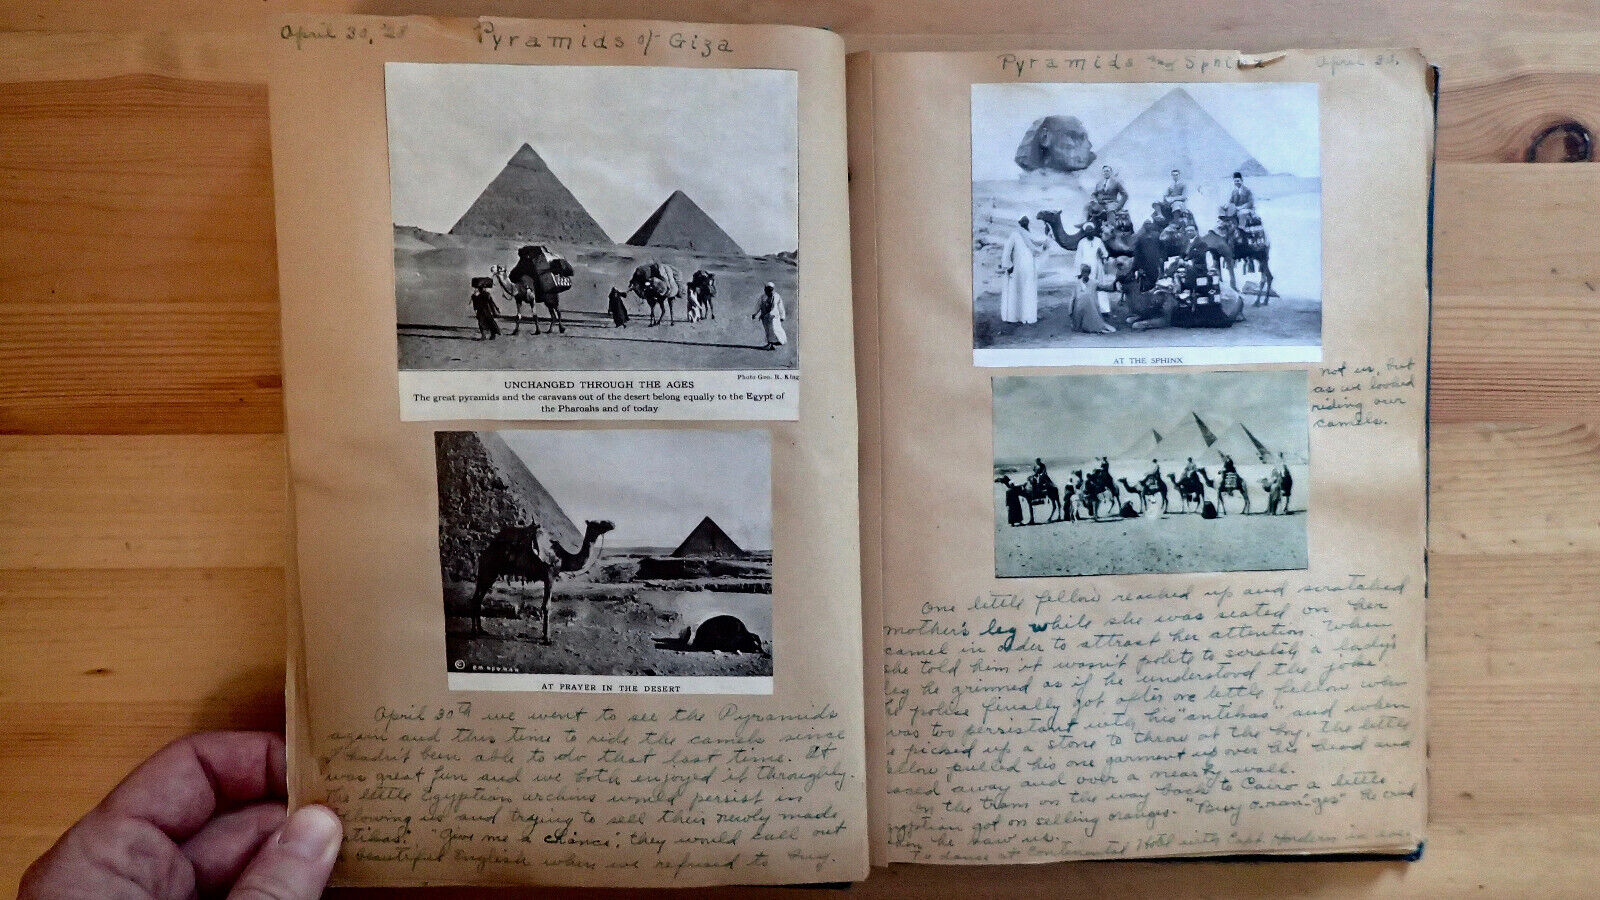 April 30, '28 Pyramids of Giza
Photo Geo. R. King
UNCHANGED THROUGH THE AGES
The great pyramids and the caravans out of the desert belong equally to the Egypt of
the Pharoahs and of today
©
AT PRAYER IN THE DESERT
April 30th we went to see the Pyramids
again and this time to ride the camels since
I hadn't been able to do that last time. It
was great fun and we both enjoyed it throughly.
The little Egyptian urchins would persist in
following us and trying to sell their newly made
"antikas". "Give me a chance", they would call out
in beautiful English when we refused to buy.
Pyramids and Sphinx April 30.
AT THE SPHINX
not us, but
as we looked
riding our
camels.
One little fellow reached up and scratched
mother's leg while she was seated on her
camel in order to attract her attention. When
she told him it wasn't polite to scratch a lady's
leg he grinned as if he understood the joke.
he police finally got after one little fellow who
was too persistant with his "antikas" and when
e picked up a stone to throw at the boy, the little
ellow pulled his one garment up over his head and
raced away and over a nearby wall.
On the tram on the way back to Cairo a little
Egyptian got on selling oranges. "Buy oran-ges" he cried
when he saw us.
To dance at Continental Hotel with Capt.